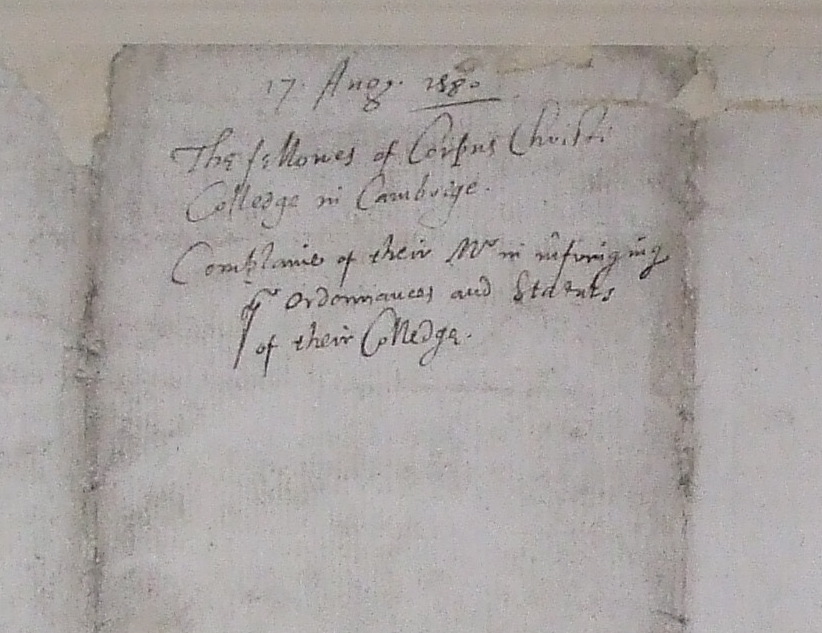 17. Aug. 1580
The fellowes of Corpus Christi
Colledge in Cambridge.
Complaine of their Mr in infringing
ordonnances and Statuts
of their Colledge.